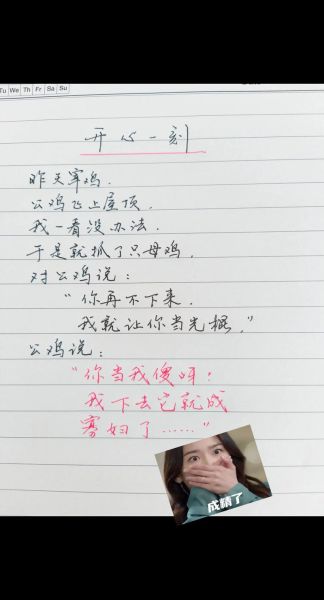 Tu We Th Fr Sa Su
开心一刻
昨天宰鸡.
公鸡飞上屋顶.
我一看没办法.
于是就抓了只母鸡.
对公鸡说：
“你再不下来.
我就让你当光棍.”
公鸡说：
“你当我傻呀！
我下去它就成
寡妇了……”
成精了